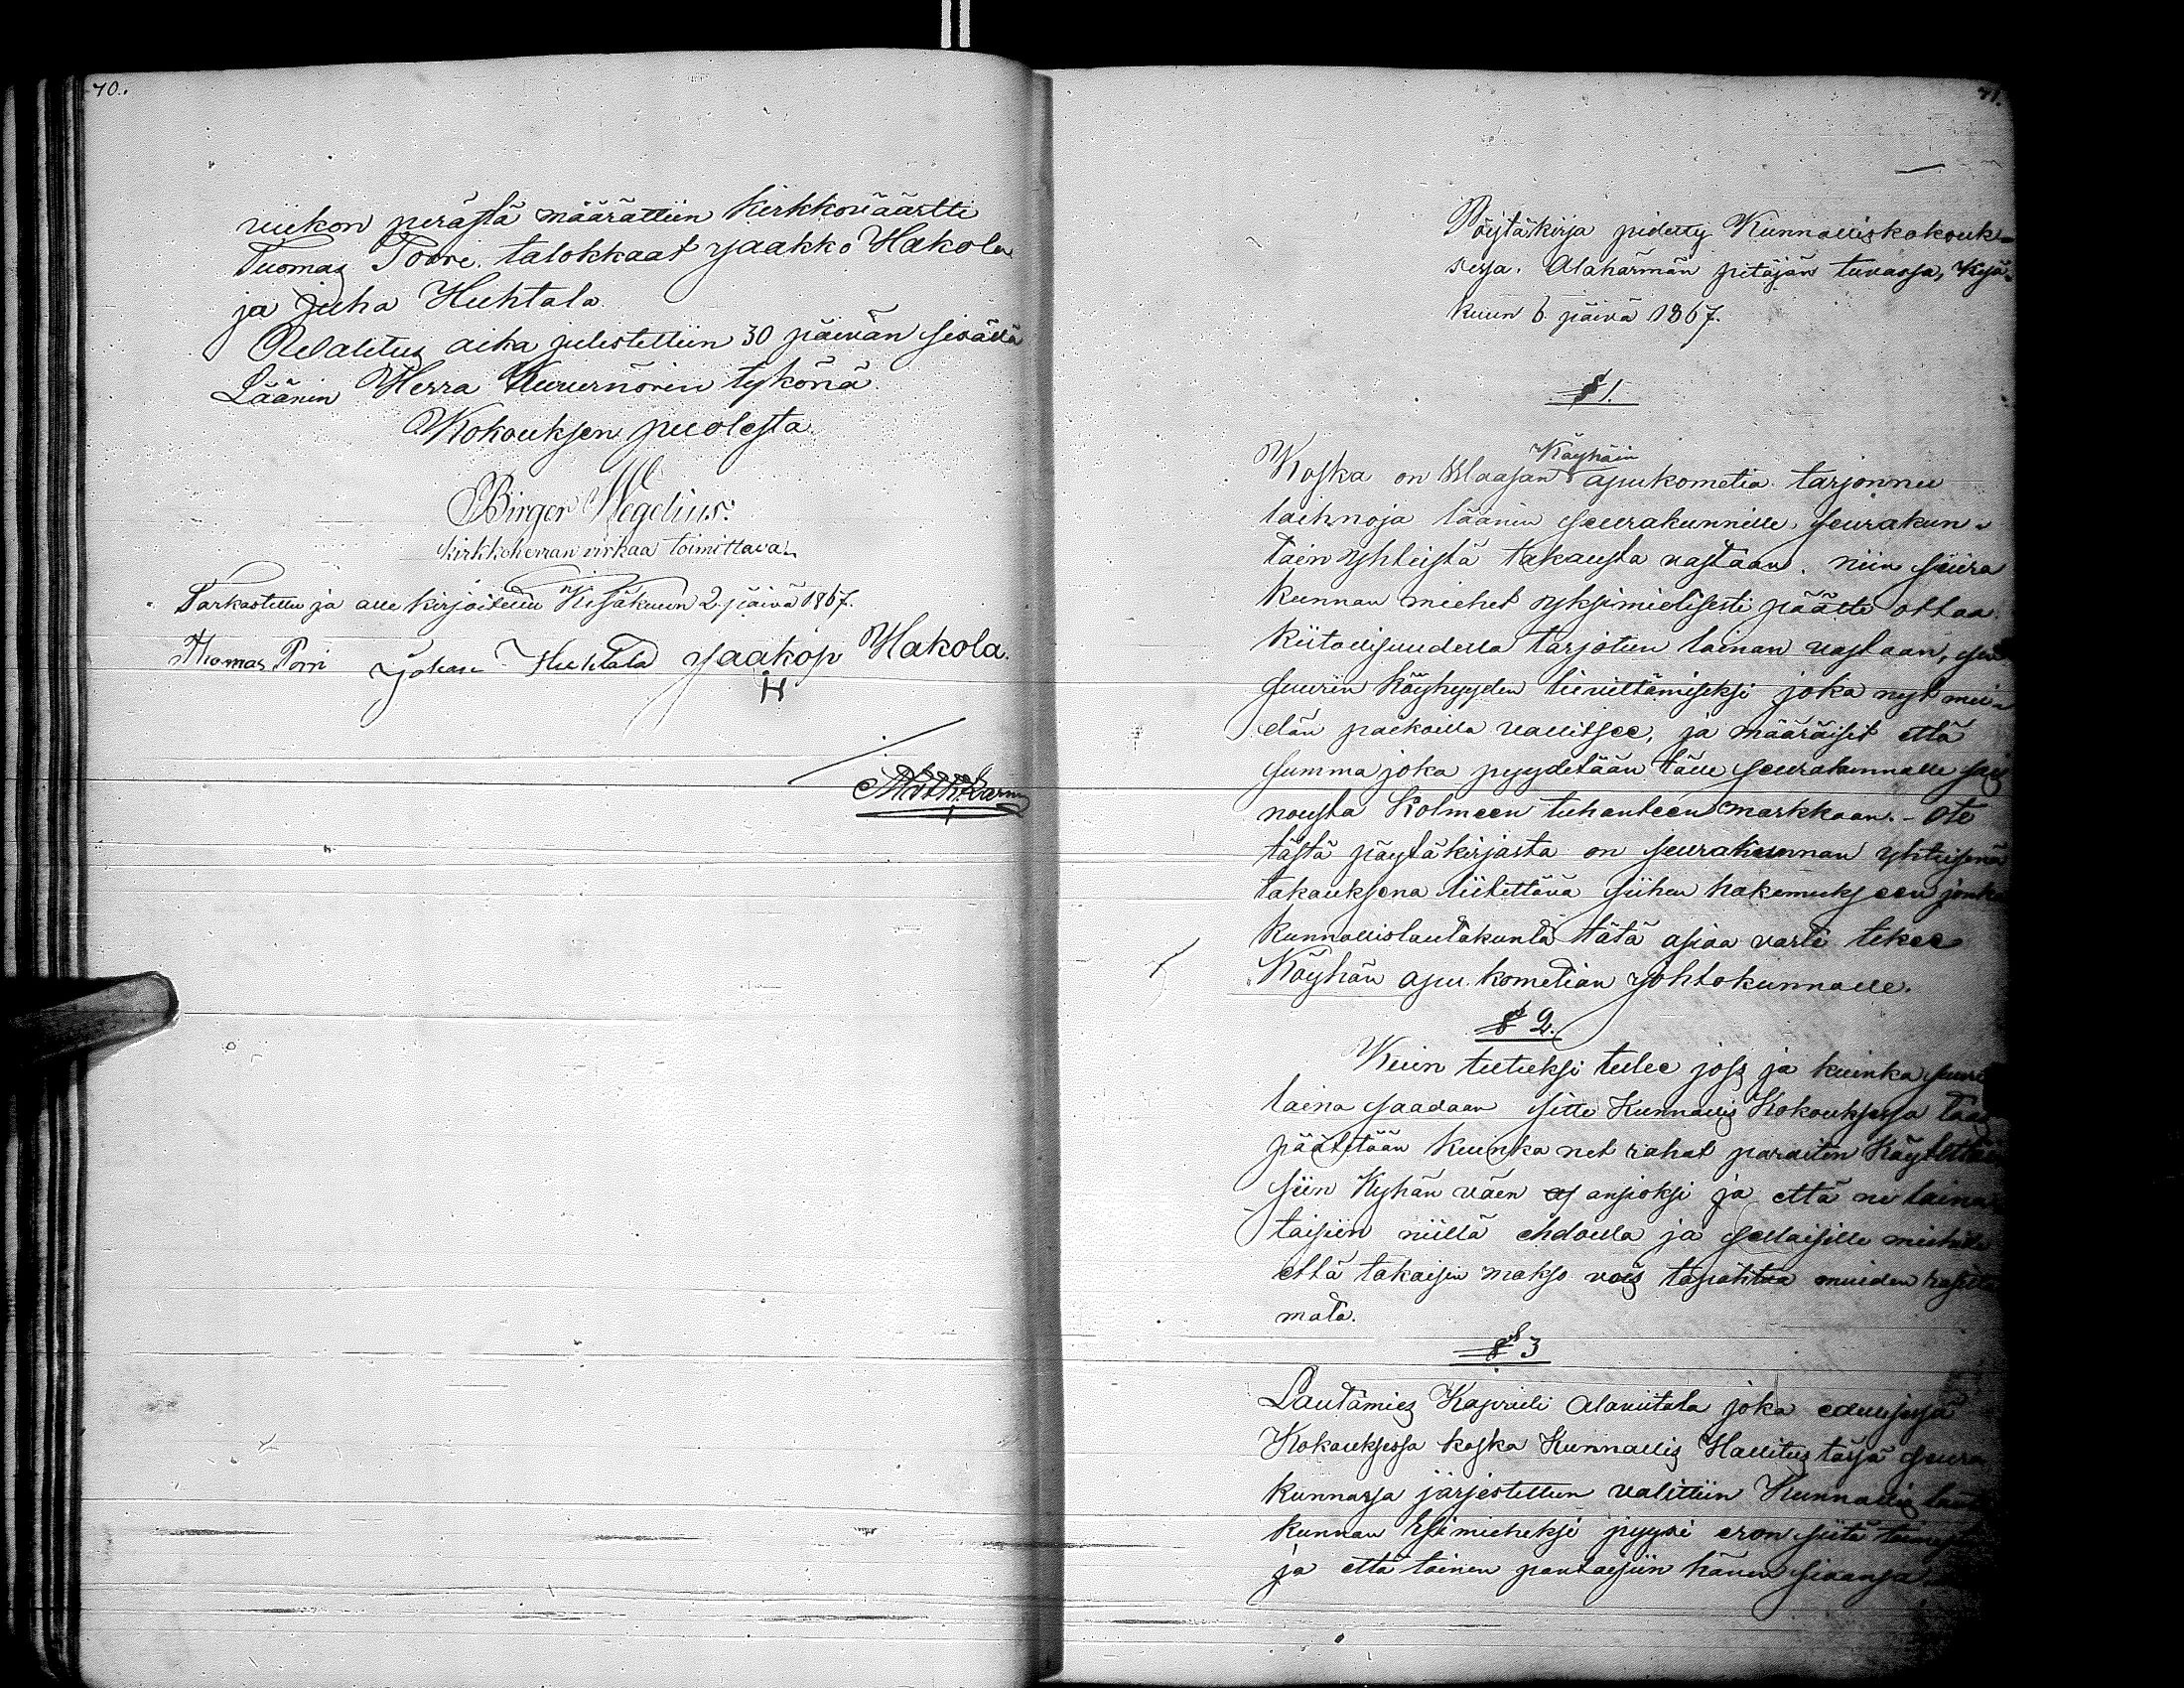 70.
viikon perästä määrättiin Kirkkoväärtti
Tuomas Porri. talokkaat Jaakko Hakola
ja Juha Huhtala.
Valitus aika julistettiin 30 päivän sisällä
Läänin Herra Kuvernörin tykönä.
Kokouksen puolesta.
Birger Wegelius.
Kirkkoherran virkaa toimittava.
Tarkastettu ja alle kirjoitettu Kesäkuun 2. päivä 1867.
Thomas Porri Johan Huhtala Jaakop Hakola.
H
71.
Pöytäkirja pidetty Kunnalliskokouk-
sessa. Alahärmän pitäjän tuvassa, Kesä-
kuun 6. päivä 1867.
§ 1.
Käyhäin
Koska on Waasan apukometia tarjonnu
laihnoja läänin seurakunnille, seurakun-
tain yhteistä takausta vastaan. niin seura
kunnan miehet yksimielisesti päätti ottaa
kiitollisuudella tarjotun lainan vastaan, sen
suurin köyhyyden lievittämiseksi joka nyt mei-
dän paikoilla vallitsee, ja määräisit että
summa joka pyydetään tälle seurakunnalle sais
nousta Kolmeen tuhanteen markkaan. - Ote
tästä päytäkirjasta on seurakunnan yhteisenä
takauksena liitettävä siihen hakemukseen jonka
Kunnallislautakunta tätä asiaa varte tekee
Käyhän apu. kometian johtokunnalle.
§ 2.
Kuin tutuksi tulee joss ja kuinka suuri
laina saadaan sitte Kunnallis Kokouksessa taas
päätetään kuinka net rahat paraiten käytettäi
siin Kyhän väen ansioksi ja että ne laina
taisiin niillä ehdoilla ja sellaisille miehille
että takaisin makso vois tapahtua muiden rasitta
mata.
§ 3
Lautämies Kaprieli Alaviitala joka edellisessä
Kokouksessa koska Kunnallis Hallitus tässä seura
kunnassa järjestettiin valittiin Kunnallis lauta
kunnan Esimieheksi pyysi eron siitä
ja että toinen pantaisiin hänen siaansa